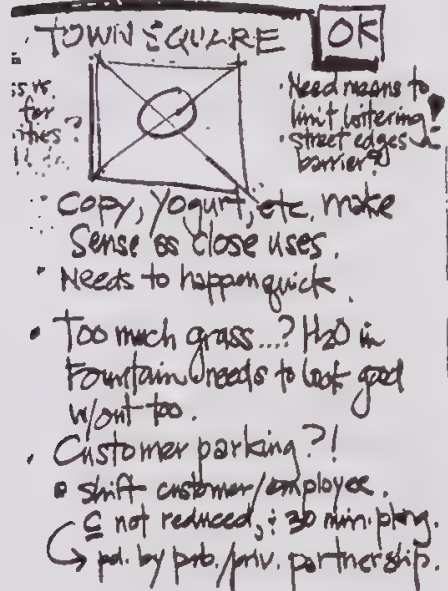 TOWN SQUARE
OK
• Need means to
limit loitering!
• street edges
barrier?
for
• Copy, Yogurt, etc. make
Sense as close uses.
• Needs to happen quick.
• Too much grass...? H2O in
Fountain needs to look good
w/out too.
• Customer parking?!
• shift customer/employee.
C not reduced, + 30 min. pkng.
→ pd. by pub./priv. partnership.